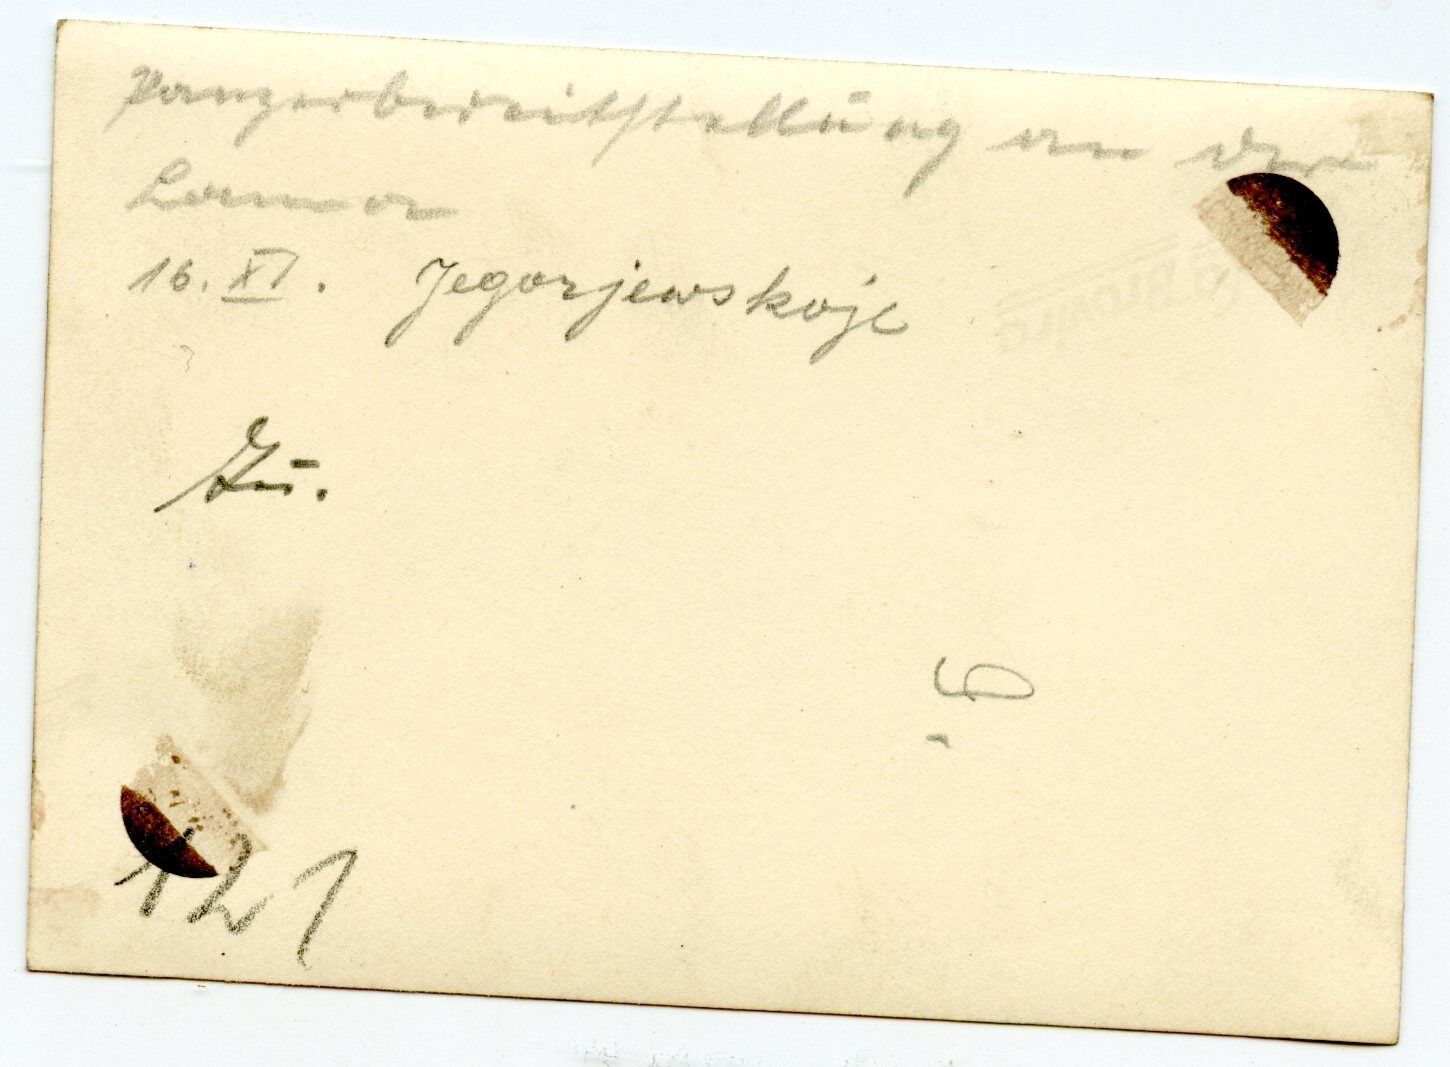 Panzerbereitstellung an der
Lama
16. XI. Jegorjewskoje
Zu.
6
121